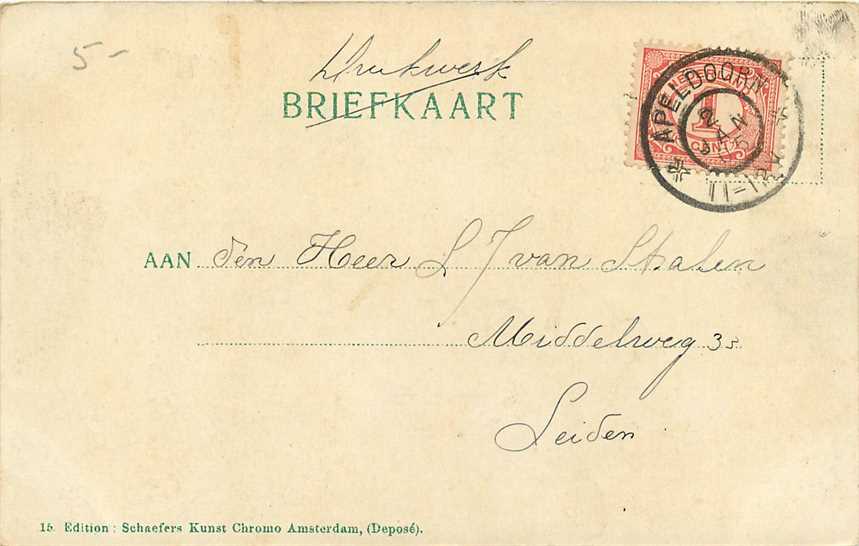 5-
Drukwerk
BRIEFKAART
NE
1
CENT
APELDOORN
2 JAN
05
11-12V
AAN den Heer L J van Stralen
Middelweg 35
Leiden
15. Edition: Schaefers Kunst Chromo Amsterdam, (Deposé).